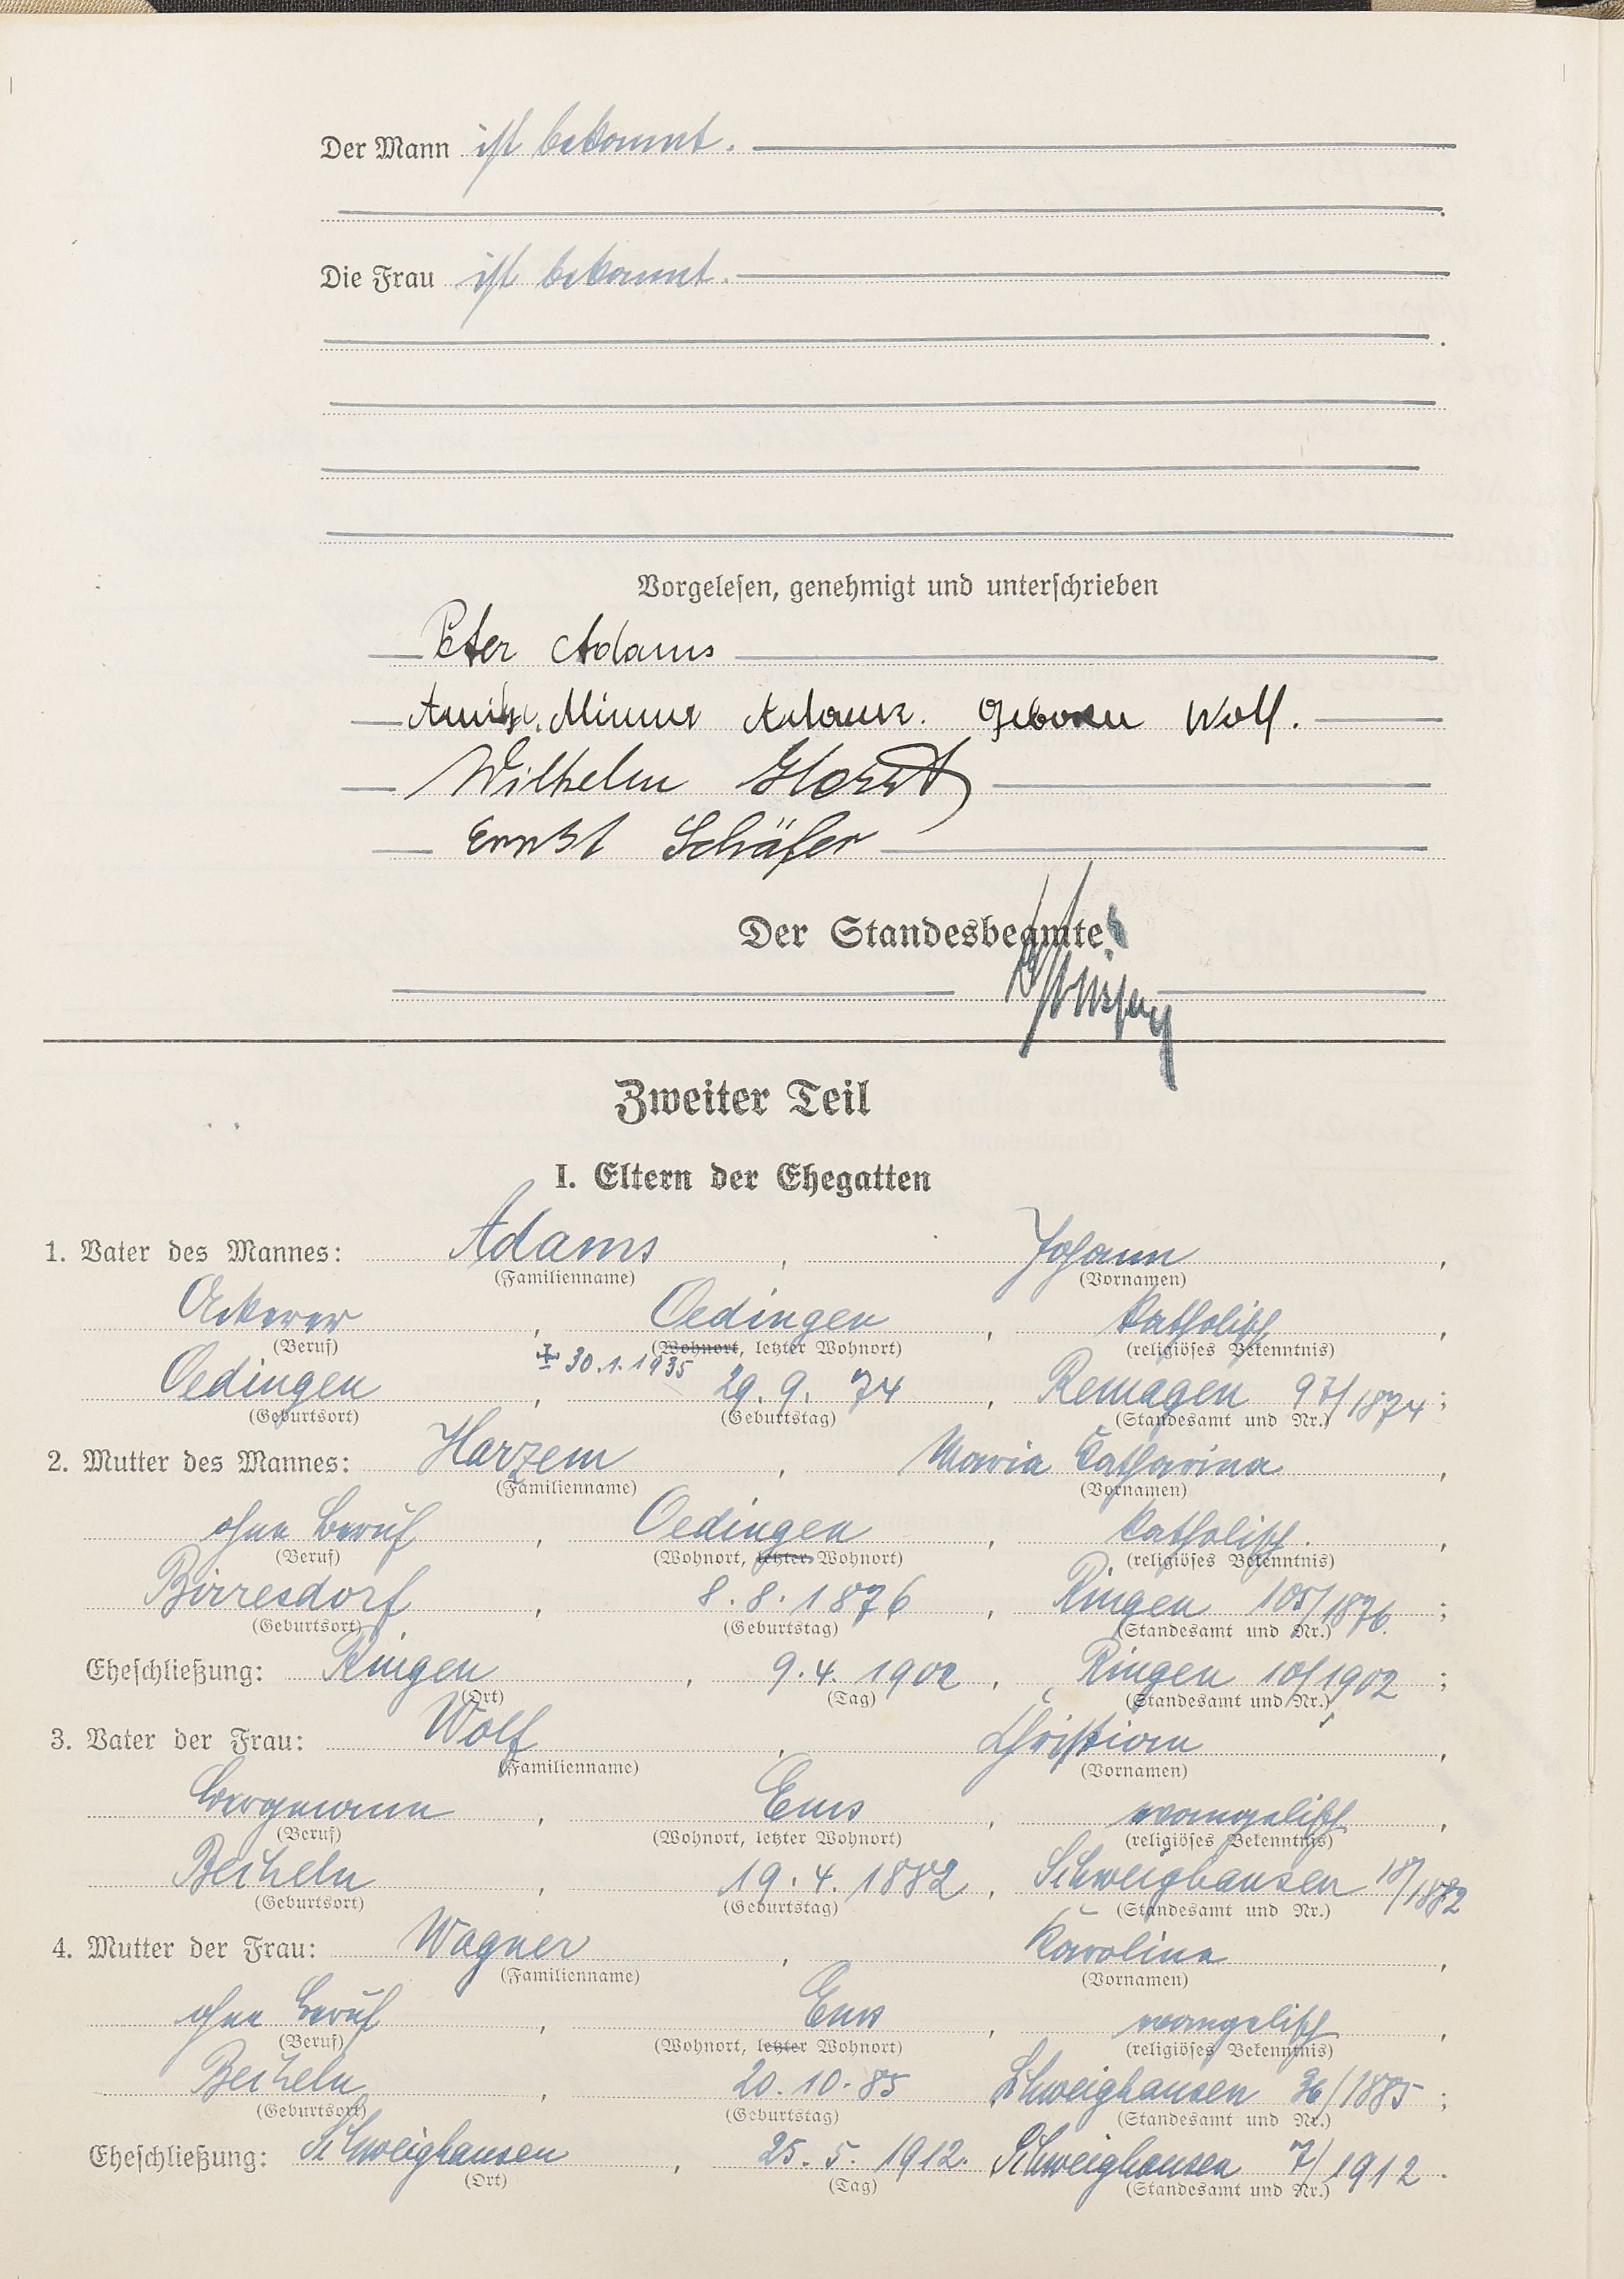 Der Mann ist bekannt.
Die Frau ist bekannt.
Vorgelesen, genehmigt und unterschrieben
Peter Adams
Minna Adams. Geboren Wolf.
Wilhelm Horst
Ernst Schäfer
Der Standesbeamte
Zweiter Teil
I. Eltern der Ehegatten
1. Vater des Mannes: Adams, Johann,
(Familienname) (Vornamen)
Ackerer, Oedingen, katholisch,
(Beruf) (Wohnort, letzter Wohnort) (religiöses Bekenntnis)
+ 30.1.1935
Oedingen, 29. 9. 74, Remagen 97/1874;
(Geburtsort) (Geburtstag) (Standesamt und Nr.)
2. Mutter des Mannes: Harzem, Maria Katharina,
(Familienname) (Vornamen)
ohne Beruf, Oedingen, katholisch.,
(Beruf) (Wohnort, letzter Wohnort) (religiöses Bekenntnis)
Birresdorf, 8. 8. 1876, Ringen 105/1876.;
(Geburtsort) (Geburtstag) (Standesamt und Nr.)
Eheschließung: Ringen, 9. 4. 1902, Ringen 10/1902;
(Ort) (Tag) (Standesamt und Nr.)
3. Vater der Frau: Wolf, Christian,
(Familienname) (Vornamen)
Bergmann, Ems, evangelisch,
(Beruf) (Wohnort, letzter Wohnort) (religiöses Bekenntnis)
Becheln, 19. 4. 1882, Schweighausen 18/1882
(Geburtsort) (Geburtstag) (Standesamt und Nr.)
4. Mutter der Frau: Wagner, Karoline,
(Familienname) (Vornamen)
ohne Beruf, Ems, evangelisch,
(Beruf) (Wohnort, letzter Wohnort) (religiöses Bekenntnis)
Becheln, 20. 10. 85 Schweighausen 36/1885;
(Geburtsort) (Geburtstag) (Standesamt und Nr.)
Eheschließung: Schweighausen, 25. 5. 1912. Schweighausen 7/1912.
(Ort) (Tag) (Standesamt und Nr.)